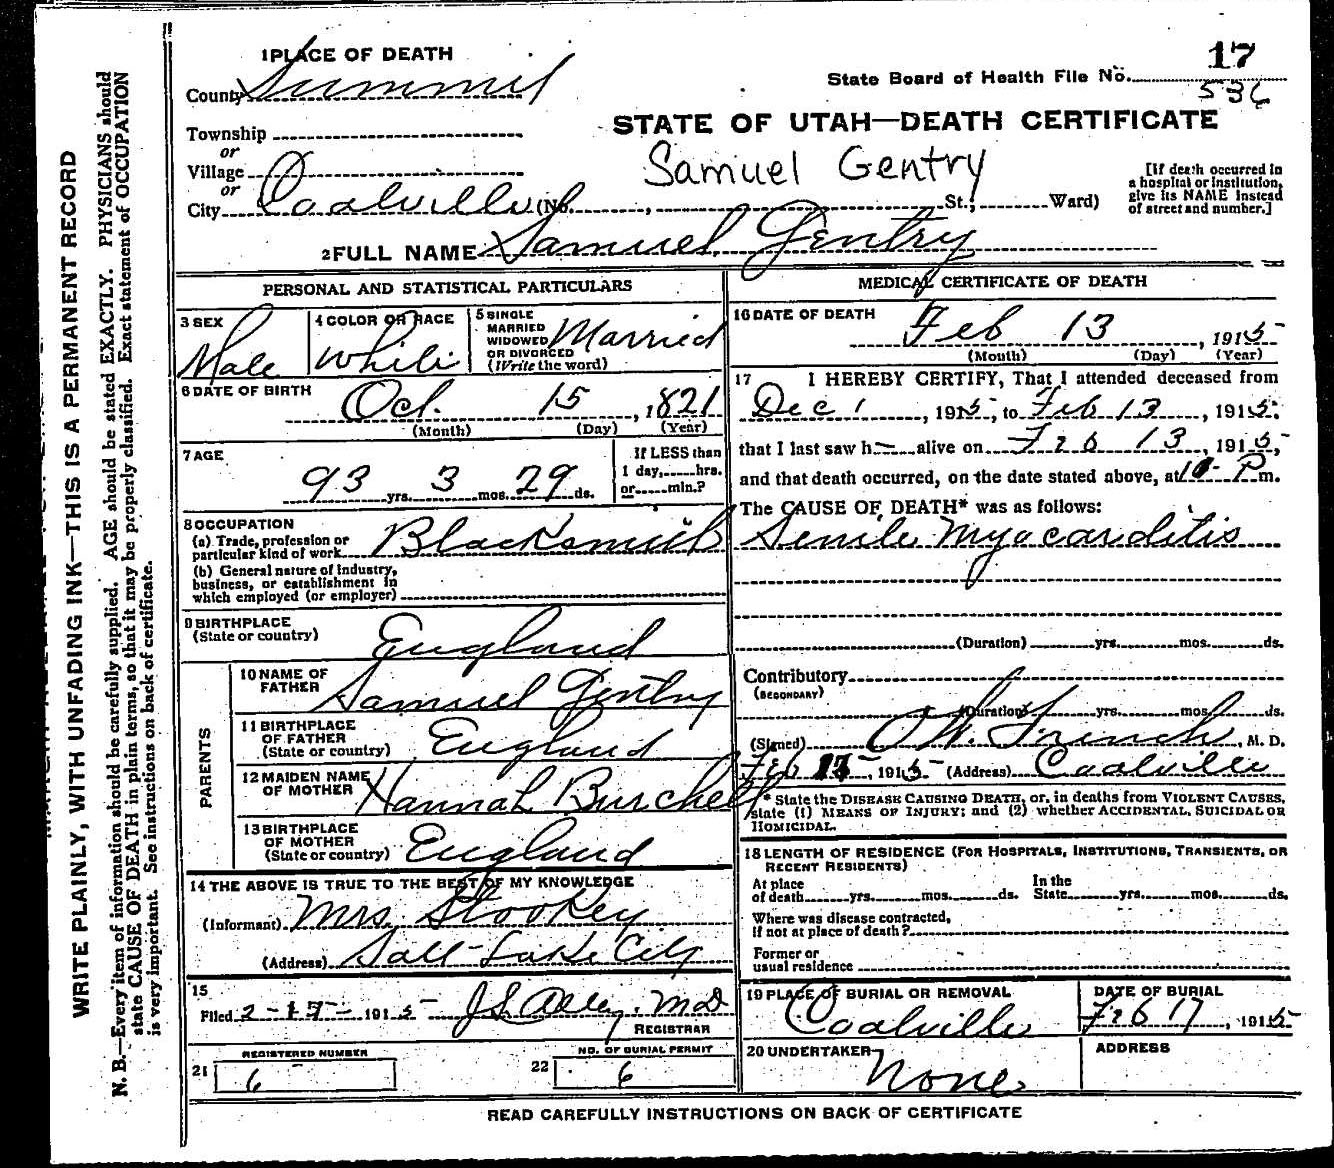 1 PLACE OF DEATH
County Summit
Township
or
Village
or
City Coalville (No. , St.; Ward)
17
State Board of Health File No.
536
STATE OF UTAH—DEATH CERTIFICATE
Samuel Gentry
[If death occurred in
a hospital or institution,
give its NAME instead
of street and number.]
2 FULL NAME Samuel Gentry
PERSONAL AND STATISTICAL PARTICULARS
3 SEX
Male
4 COLOR OR RACE
White
5 SINGLE
MARRIED
WIDOWED
OR DIVORCED
(Write the word)
Married
6 DATE OF BIRTH
Oct. 15, 1821
(Month) (Day) (Year)
7 AGE
93 yrs. 3 mos. 29 ds.
If LESS than
1 day, hrs.
or min.?
8 OCCUPATION
(a) Trade, profession or
particular kind of work Blacksmith
(b) General nature of Industry,
business, or establishment in
which employed (or employer)
9 BIRTHPLACE
(State or country)
England
PARENTS
10 NAME OF
FATHER
Samuel Gentry
11 BIRTHPLACE
OF FATHER
(State or country)
England
12 MAIDEN NAME
OF MOTHER
Hannah Burchell
13 BIRTHPLACE
OF MOTHER
(State or country)
England
14 THE ABOVE IS TRUE TO THE BEST OF MY KNOWLEDGE
(Informant) Mrs. Stookey
(Address) Salt Lake City
15
Filed 2-17- 1915
REGISTRAR
REGISTERED NUMBER
21 6
NO. OF BURIAL PERMIT
22 6
MEDICAL CERTIFICATE OF DEATH
16 DATE OF DEATH
Feb 13, 1915
(Month) (Day) (Year)
17 I HEREBY CERTIFY, That I attended deceased from
Dec 1, 1915, to Feb 13, 1915,
that I last saw h alive on Feb 13, 1915,
and that death occurred, on the date stated above, at 10 P m.
The CAUSE OF DEATH* was as follows:
Senile Myocarditis
(Duration) yrs. mos. ds.
Contributory
(SECONDARY)
(Duration) yrs. mos. ds.
(Signed) W. French, M. D.
Feb 1915 (Address) Coalville
* State the DISEASE CAUSING DEATH, or, in deaths from VIOLENT CAUSES,
state (1) MEANS OF INJURY; and (2) whether ACCIDENTAL, SUICIDAL OR
HOMICIDAL.
18 LENGTH OF RESIDENCE (FOR HOSPITALS, INSTITUTIONS, TRANSIENTS, OR
RECENT RESIDENTS)
At place
of death yrs. mos. ds.
In the
State yrs. mos. ds.
Where was disease contracted,
if not at place of death?
Former or
usual residence
19 PLACE OF BURIAL OR REMOVAL
Coalville
DATE OF BURIAL
Feb 17, 1915
20 UNDERTAKER
None
ADDRESS
READ CAREFULLY INSTRUCTIONS ON BACK OF CERTIFICATE
WRITE PLAINLY, WITH UNFADING INK—THIS IS A PERMANENT RECORD
N. B.—Every item of information should be carefully supplied. AGE should be stated EXACTLY. PHYSICIANS should
state CAUSE OF DEATH in plain terms, so that it may be properly classified. Exact statement of OCCUPATION
is very important. See instructions on back of certificate.